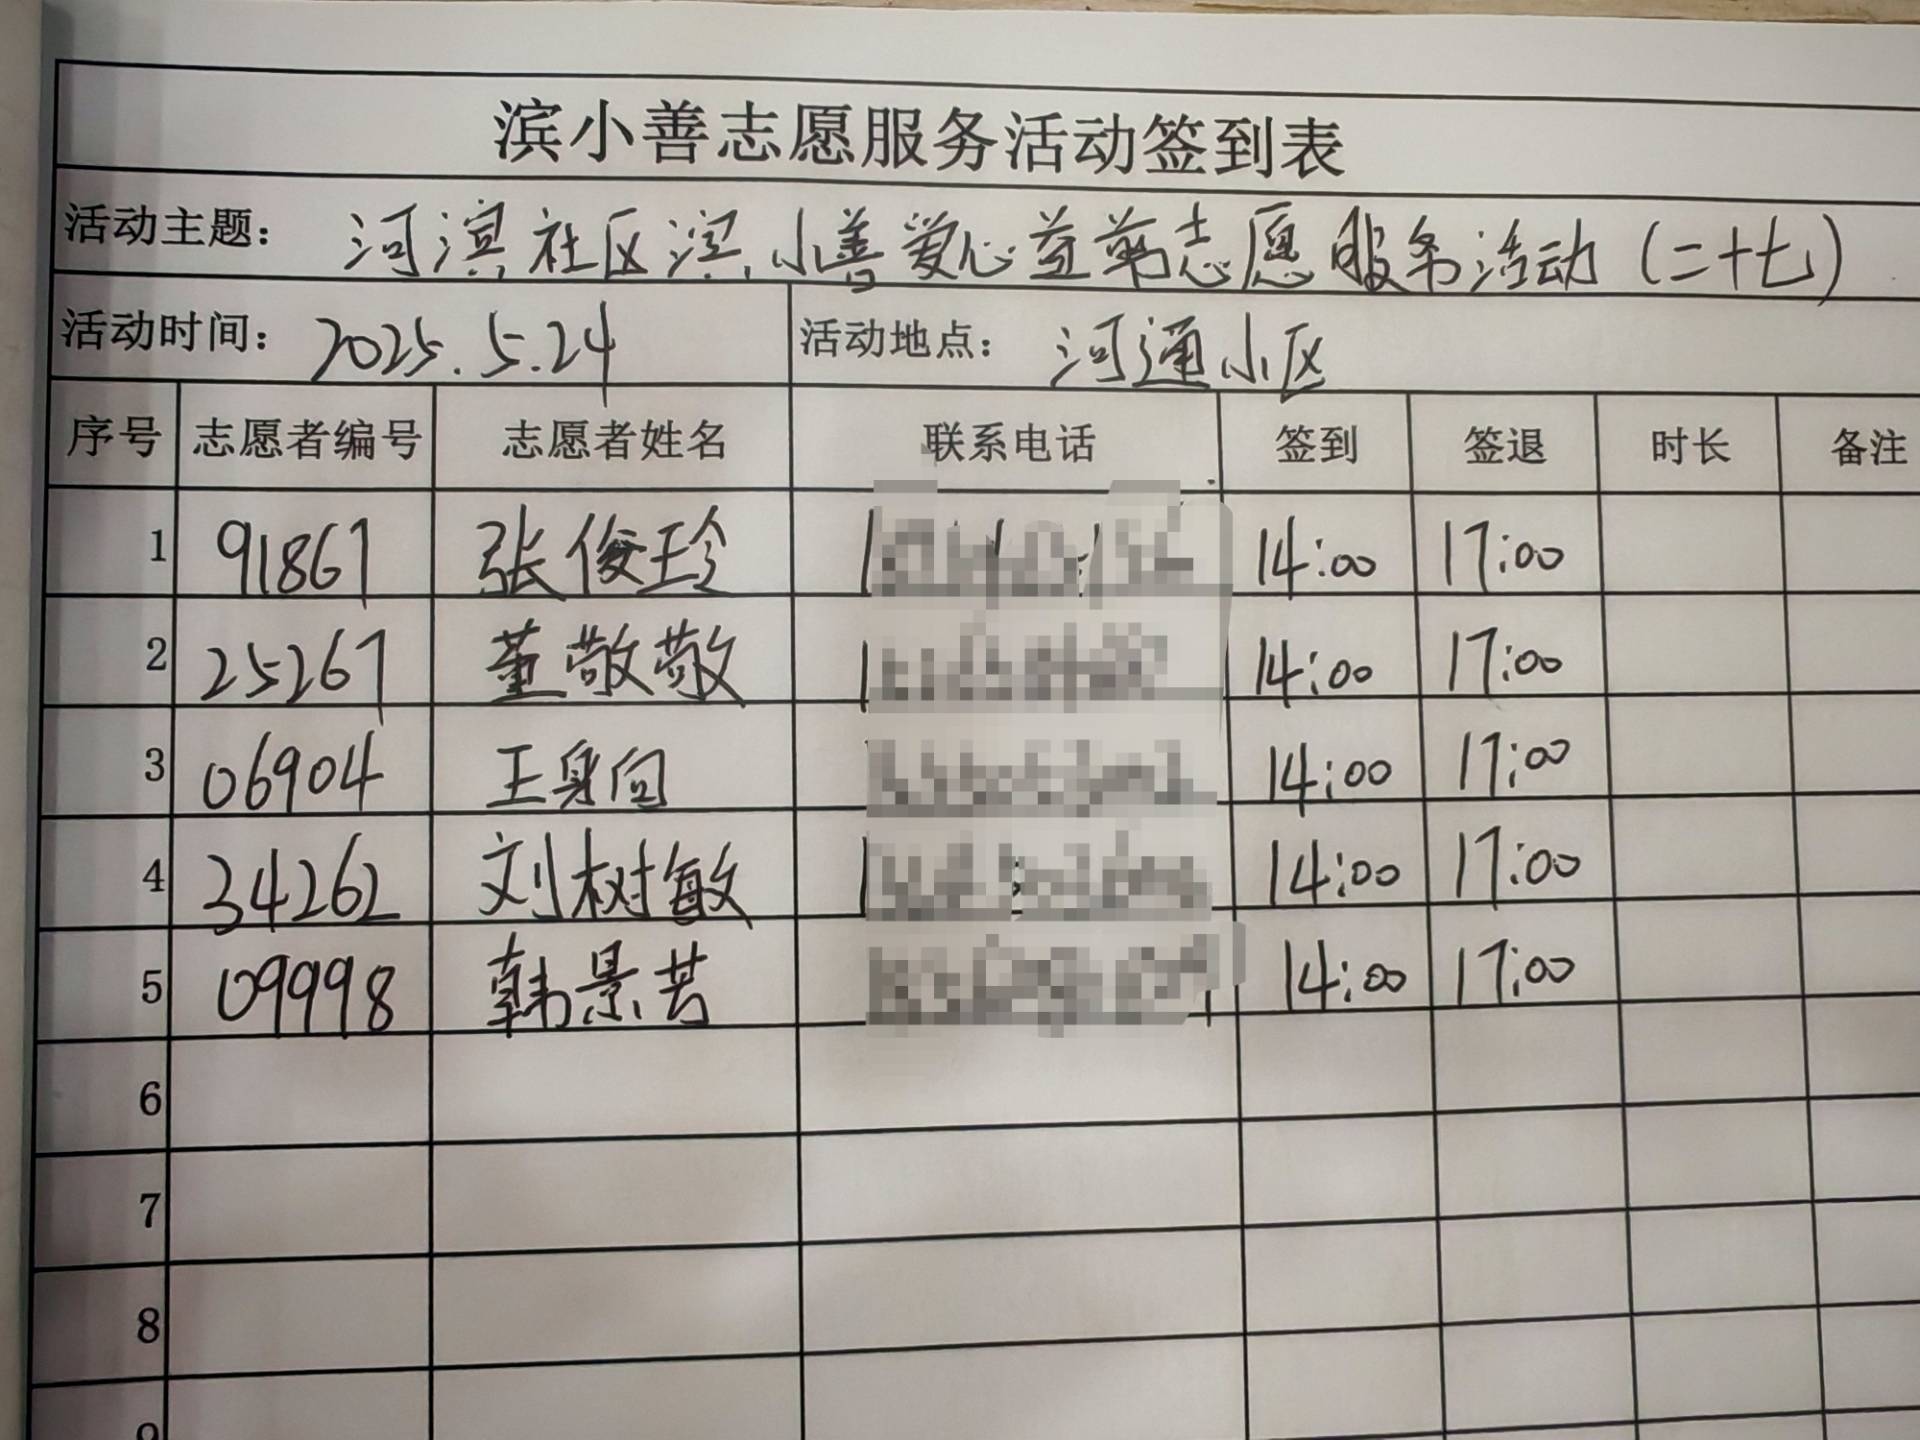 滨小善志愿服务活动签到表
活动主题： 河滨社区滨小善爱心益剪志愿服务活动（二十七）
活动时间： 2025.5.24 活动地点： 河通小区
序号 志愿者编号 志愿者姓名 联系电话 签到 签退 时长 备注
1 91867 张俊玲 14:00 17:00
2 25267 董敬敬 14:00 17:00
3 06904 王身向 14:00 17:00
4 34262 刘树敏 14:00 17:00
5 09998 韩景芸 14:00 17:00
6
7
8
9